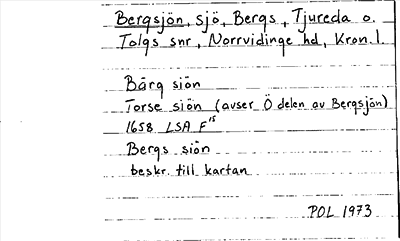 Bergsjön, sjö, Bergs, Tjureda o.
Tolgs snr, Norrvidinge hd, Kron. l.
Bärg siön
Torse siön (avser Ö delen av Bergsjön)
1658 LSA F 15
Bergs siön
beskr. till kartan
POL 1973